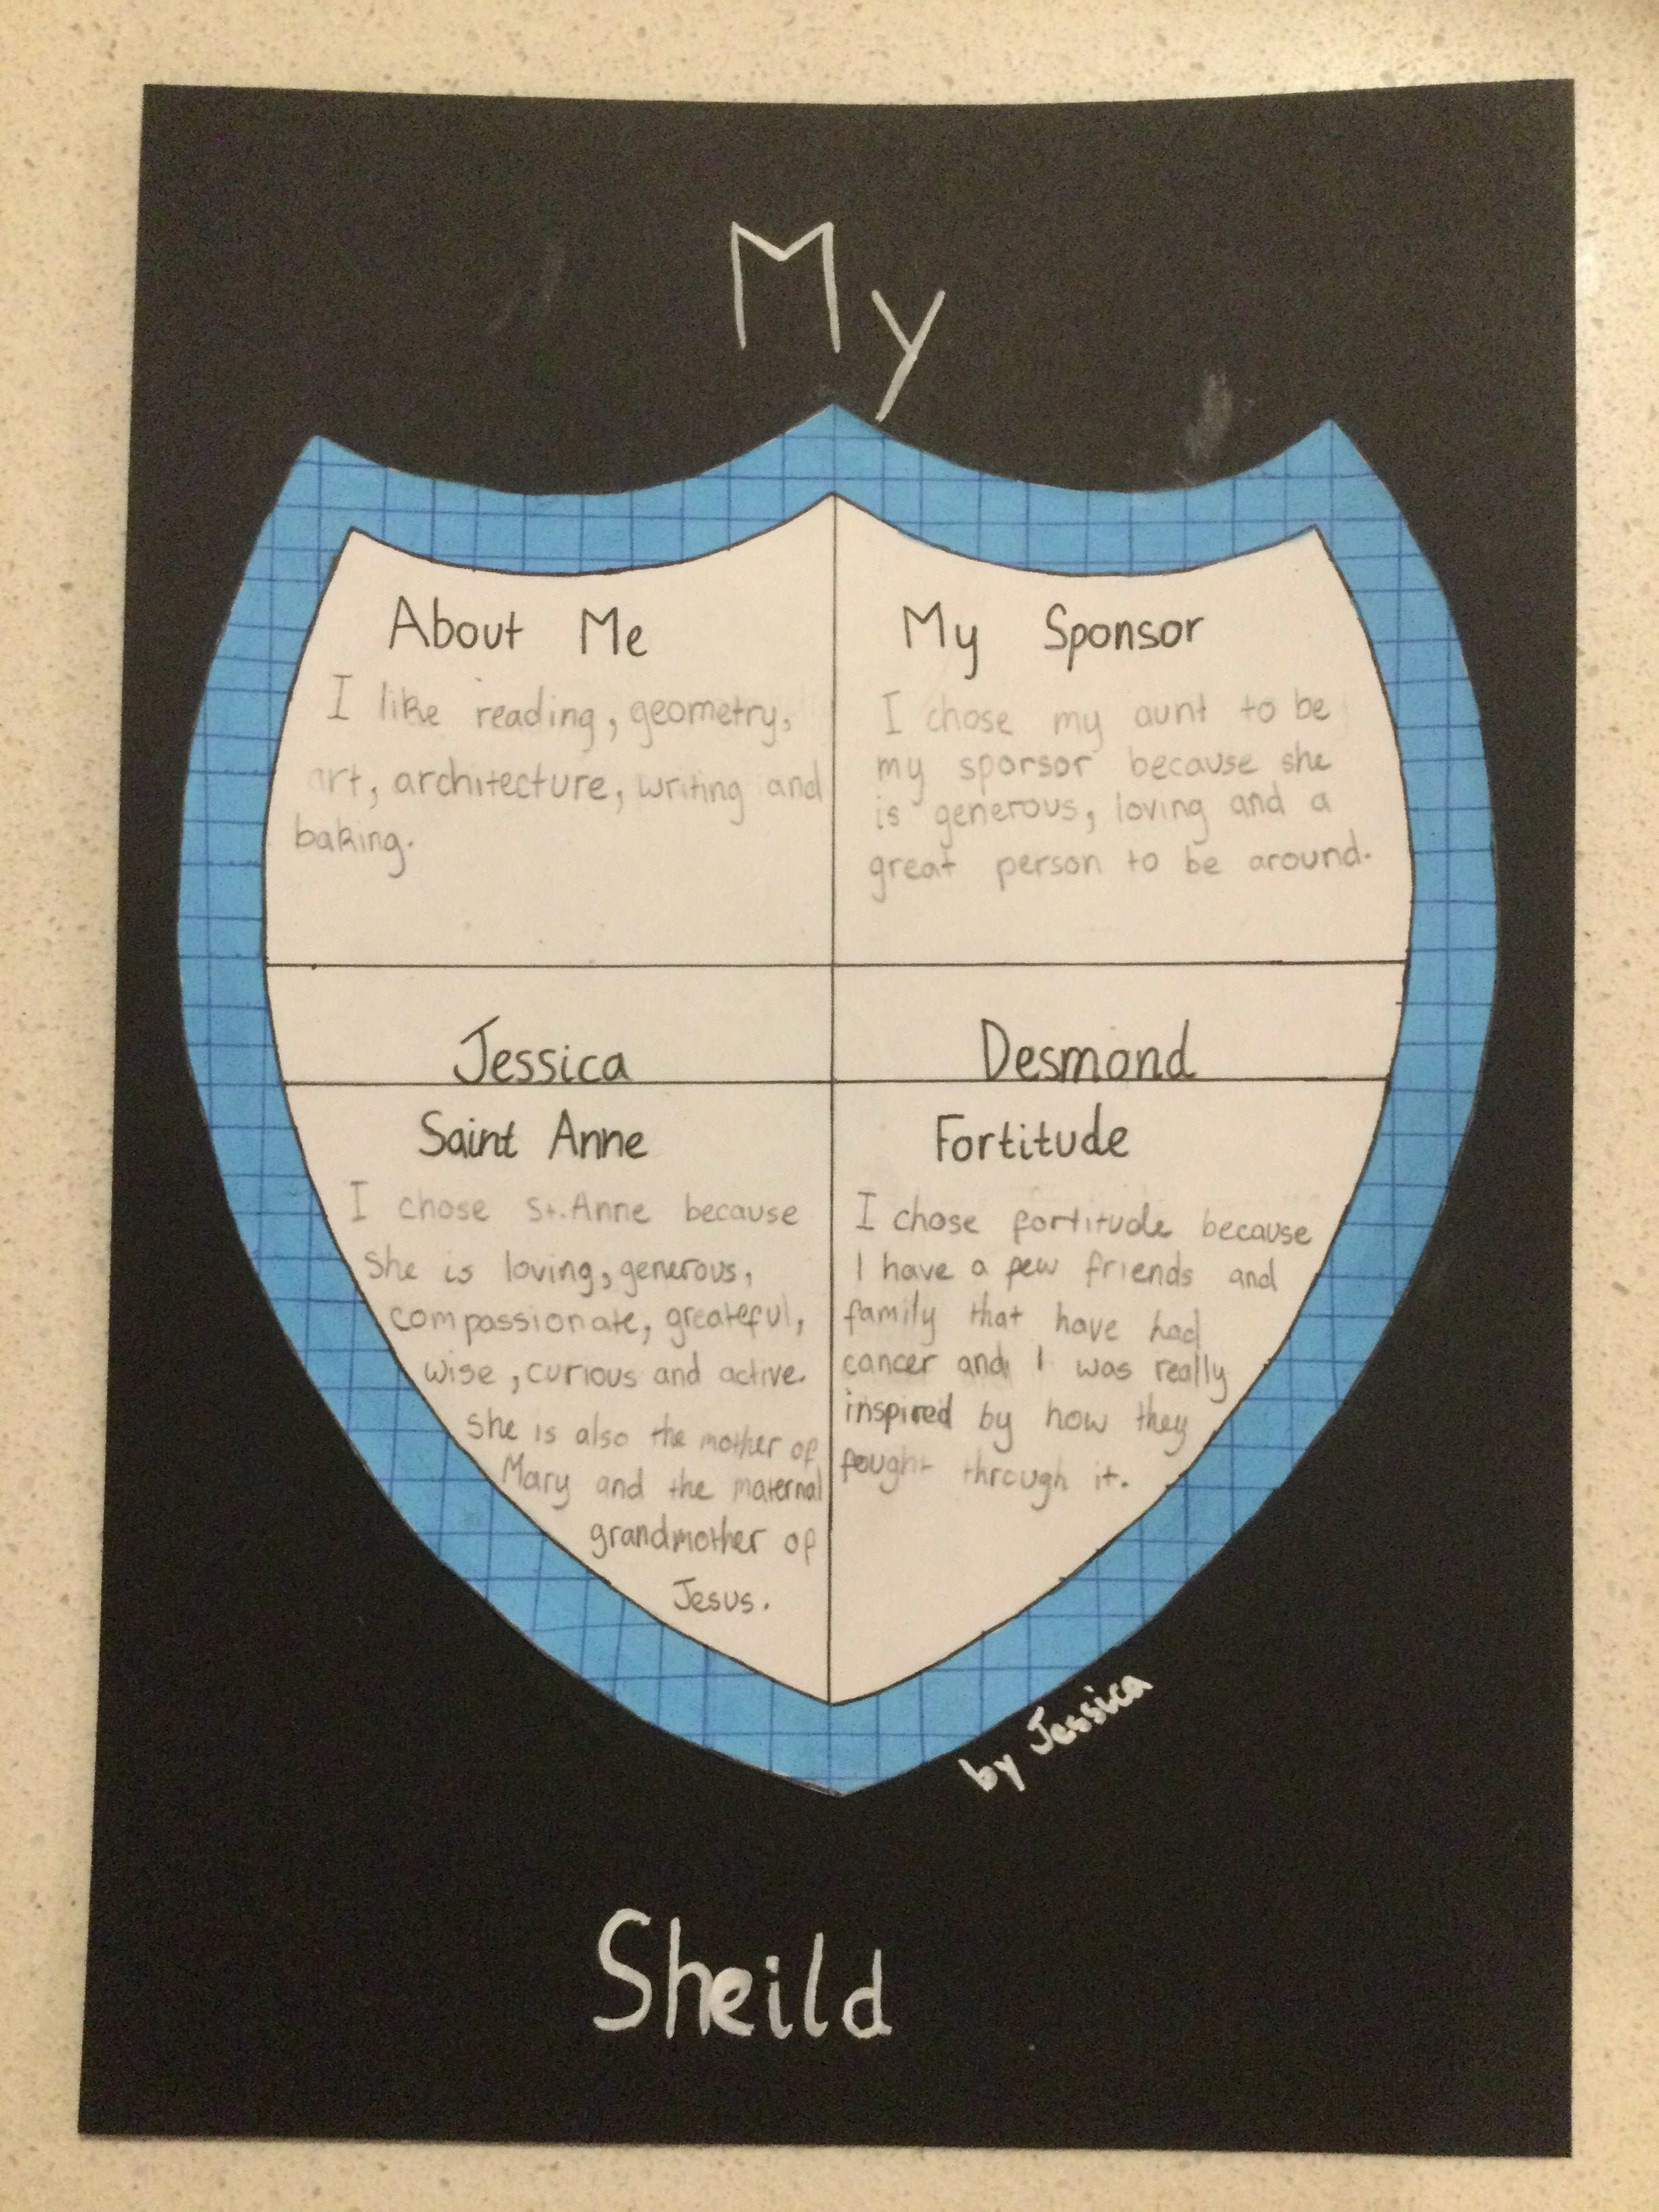 My
About Me
I like reading, geometry,
art, architecture, writing and
baking.
My Sponsor
I chose my aunt to be
my sporsor because she
is generous, loving and a
great person to be around.
Jessica
Desmond
Saint Anne
I chose St. Anne because
she is loving, generous,
compassionate, greateful,
wise, curious and active.
she is also the mother of
Mary and the maternal
grandmother of
Jesus.
Fortitude
I chose fortitude because
I have a few friends and
family that have had
cancer and I was really
inspired by how they
fought through it.
by Jessica
Sheild